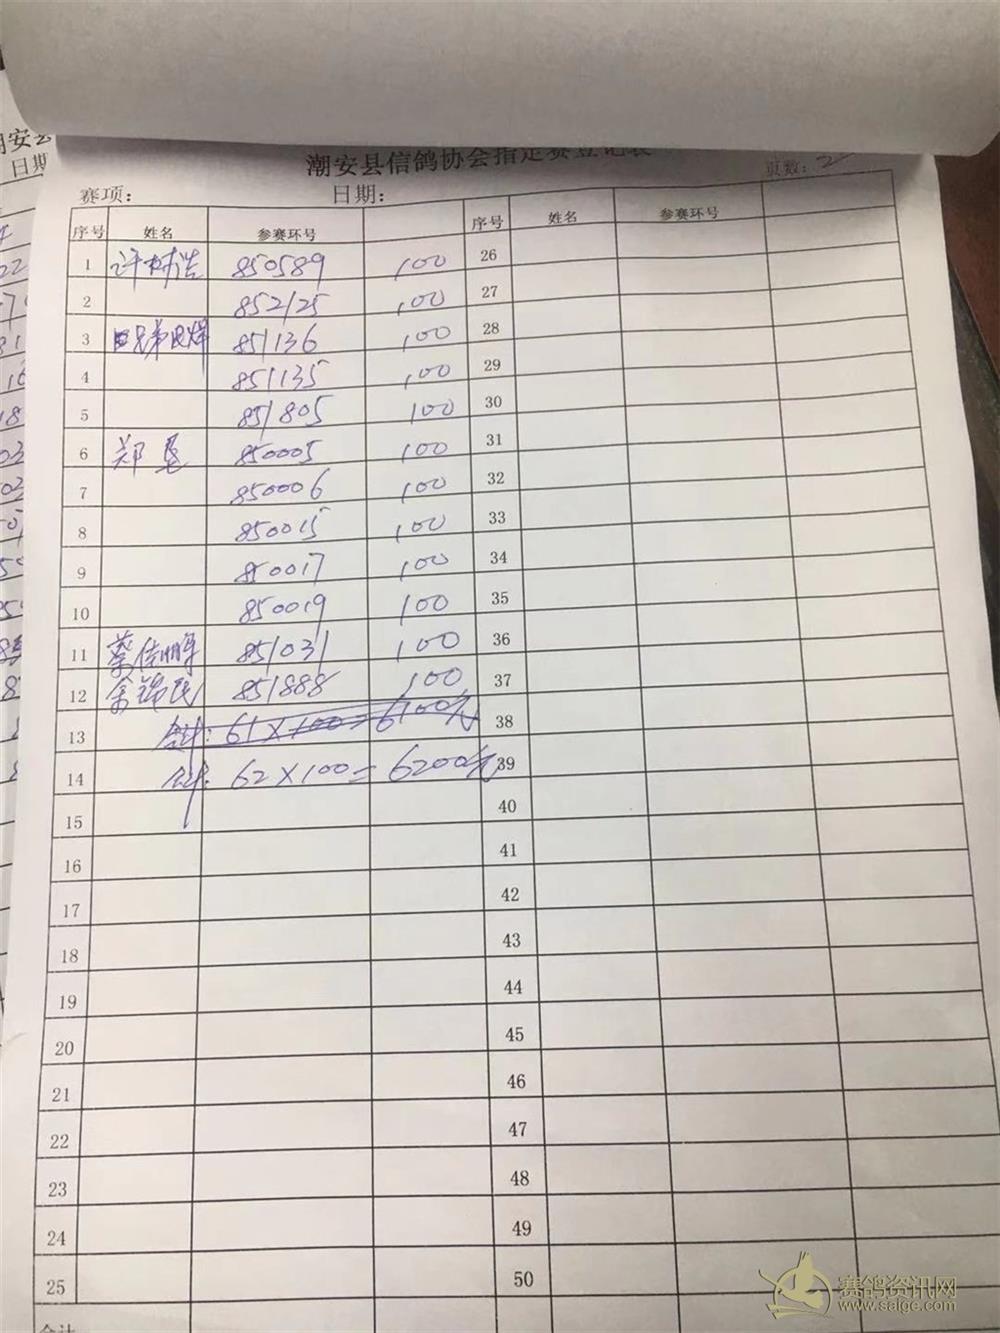 潮安县信鸽协会指定赛登记表
页数: 2
赛项: 日期:
序号 姓名 参赛环号 序号 姓名 参赛环号
1 许树浩 850589 100 26
2 852125 100 27
3 兄弟 851136 100 28
4 851135 100 29
5 851805 100 30
6 郑 850005 100 31
7 850006 100 32
8 850015 100 33
9 850017 100 34
10 850019 100 35
11 蔡佳鹏 851031 100 36
12 余锦民 851888 100 37
13 合计: 61×100=6100元 38
14 合计: 62×100=6200元 39
15 40
16 41
17 42
18 43
19 44
20 45
21 46
22 47
23 48
24 49
25 50
合计
日期
赛鸽资讯网
www.saige.com